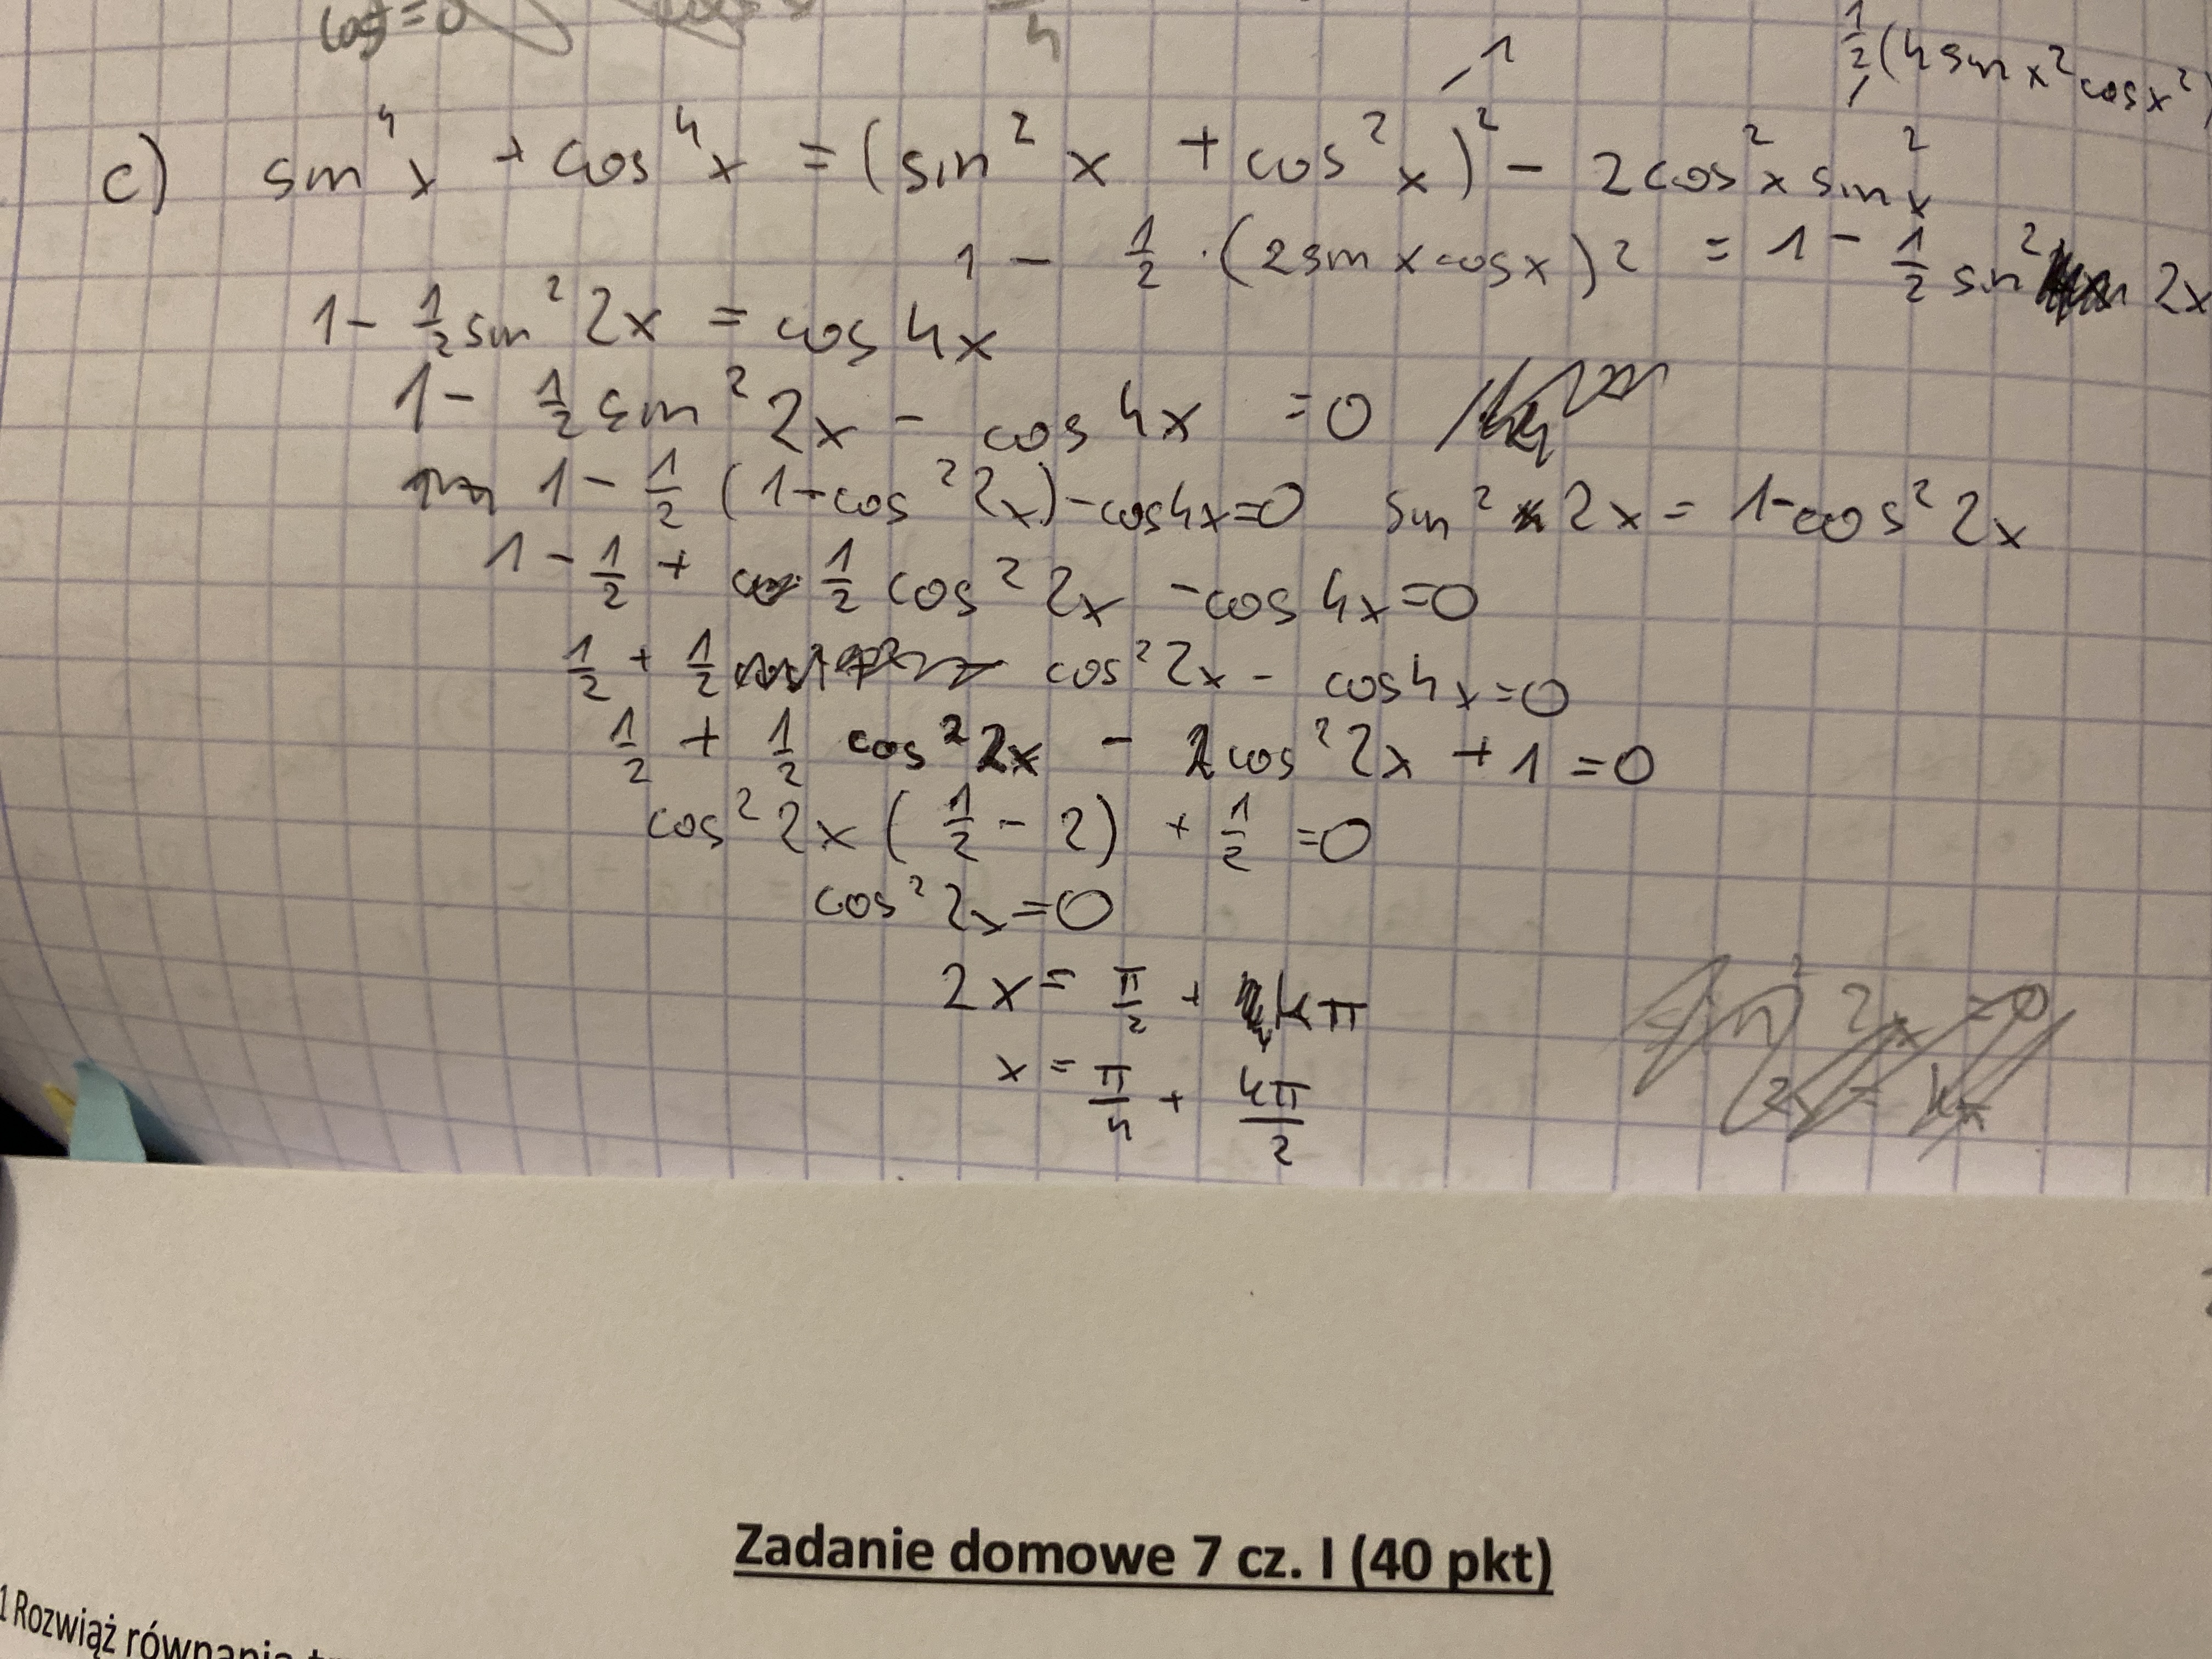 cos = 0
4
1
1/2 (4 sin x² cos x²)
c) sin⁴x + cos⁴x = (sin²x + cos²x)² - 2cos²x sin²x
1 - 1/2 · (2sin x cos x)² = 1 - 1/2 sin² 2x
1 - 1/2 sin² 2x = cos 4x
1 - 1/2 sin² 2x - cos 4x = 0
1 - 1/2 (1-cos² 2x) - cos4x=0 sin² 2x = 1-cos² 2x
1 - 1/2 + 1/2 cos² 2x - cos 4x=0
1/2 + 1/2 cos² 2x - cos4x=0
1/2 + 1/2 cos² 2x - 2cos² 2x + 1 = 0
cos² 2x (1/2 - 2) + 1/2 = 0
cos² 2x = 0
2x = π/2 + kπ
x = π/4 + kπ/2
sin² 2x = 0
2x = kπ
Zadanie domowe 7 cz. I (40 pkt)
1 Rozwiąż równania